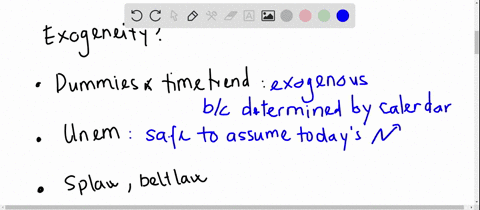 Exogeneity?
• Dummies & timetrend : exogenous
b/c determined by calendar
• Unem : safe to assume today's
• Splaw, beltlaw